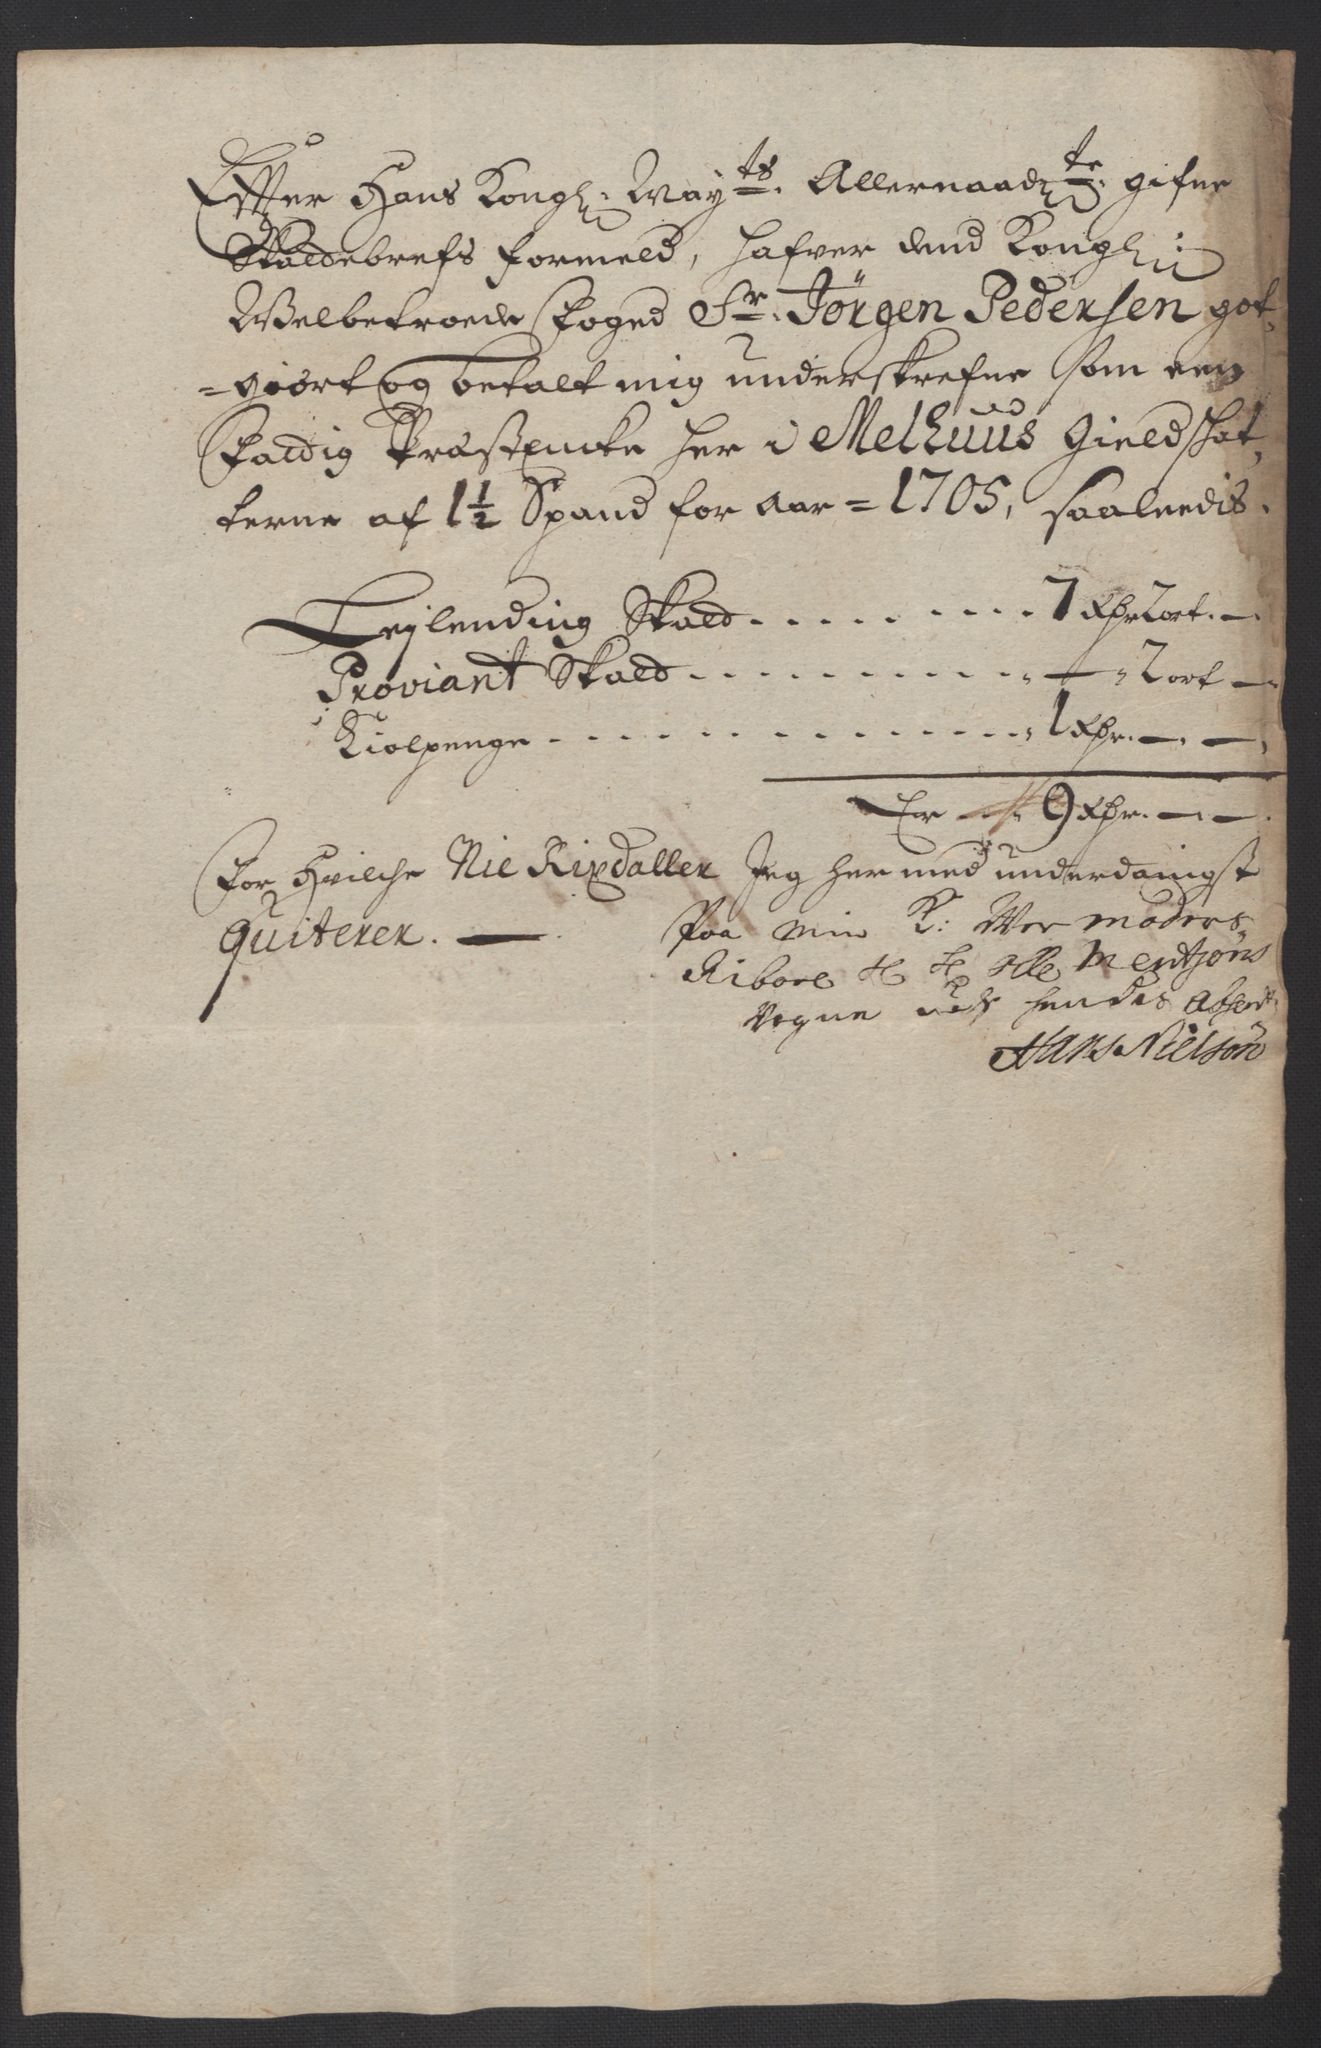 Efter Hans Kongl: May:ts: Allernaad:te: gifne
Skattebrefs formeld, hafver dend Kongl:
Welbetroede Foged Sr: Jörgen Pedersen got,
=giört og betalt mig underskrefne som een
Fattig Præstencke her i Melhuus Gield skat,
terne af 1½ Spand for Aar = 1705, saaleedis.
Leylending Skatt . . . . . . . . . 7 Rdr 2 ort. —
Proviant Skatt . . . . . . . . . . „ — „ 2 ort —
Kiolpenge . . . . . . . . . . . . „ 1 Rdr. — . —
Er . . 9 Rdr. — . —
For Hvilche Nie Rixdaller Jeg her med underdanigst
Quiterer. —
Paa min K: Wermoders
Mentzöns
Vegne udj hendes absent:
Hans Nielsön